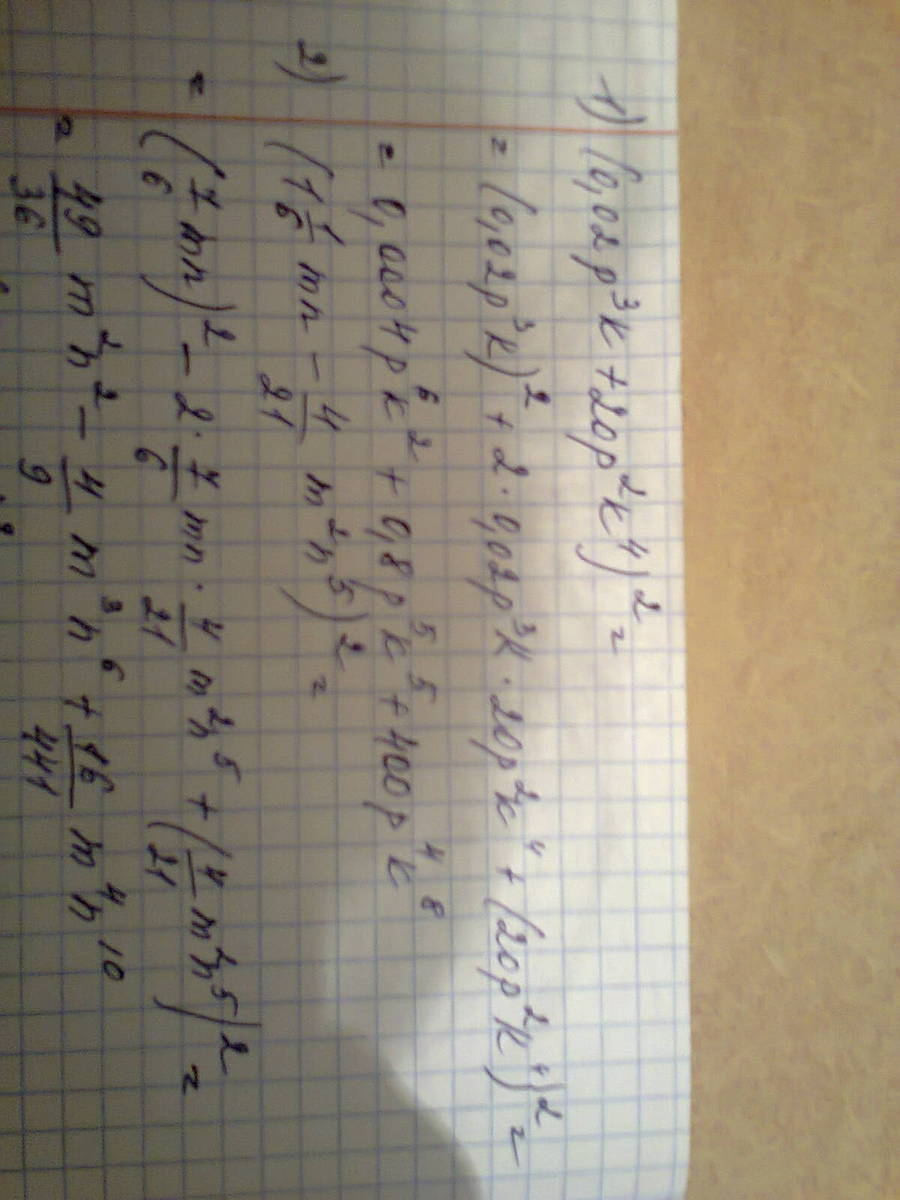 1) (0,02p³k + 20p²k⁴)² =
= (0,02p³k)² + 2·0,02p³k·20p²k⁴ + (20p²k⁴)² =
= 0,0004p⁶k² + 0,8p⁵k⁵ + 400p⁴k⁸
2) (1 1/6 mn − 4/21 m²n⁵)² =
= (7/6 mn)² − 2·7/6 mn·4/21 m²n⁵ + (4/21 m²n⁵)² =
= 49/36 m²n² − 4/9 m³n⁶ + 16/441 m⁴n¹⁰